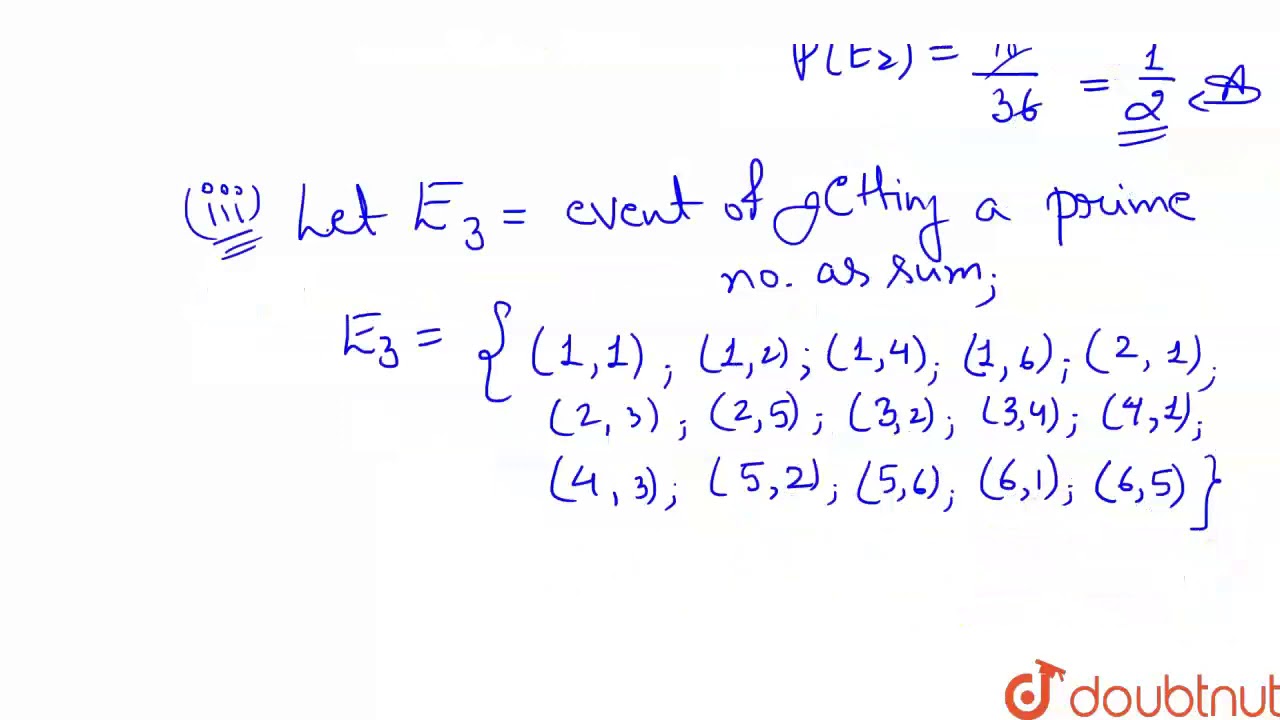 P(E2) = /36 = 1/2 A
(iii) Let E3 = event of getting a prime
no. as sum;
E3 = { (1,1) ; (1,2) ; (1,4) ; (1,6) ; (2,1) ;
(2,3) ; (2,5) ; (3,2) ; (3,4) ; (4,1) ;
(4,3) ; (5,2) ; (5,6) ; (6,1) ; (6,5) }
doubtnut